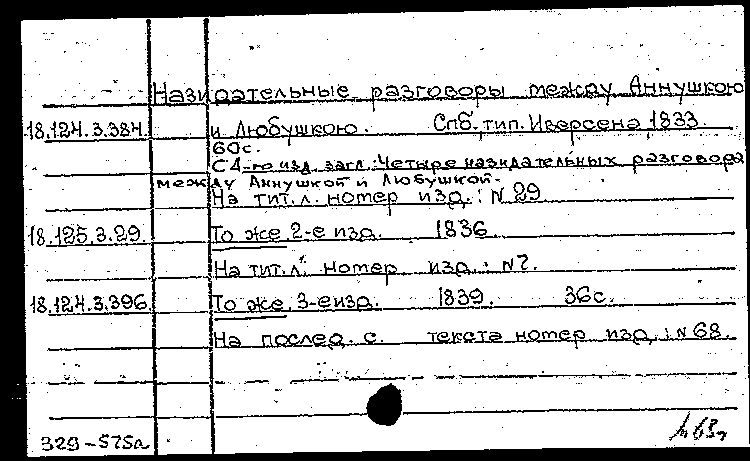 Назидательные разговоры между Аннушкою
18.124.3.384. и Любушкою. Спб, тип. Иверсена, 1833.
60 с.
С 4-го изд. загл.: Четыре назидательных разговора
между Аннушкой и Любушкой.
На тит. л. номер изд.: N 29
18.125.3.29. То же. 2-е изд. 1836.
На тит. л. номер изд.: N 7.
18.124.3.396. То же. 3-е изд. 1839. 36 с.
На послед. с. текста номер изд.: N 68.
329-575а